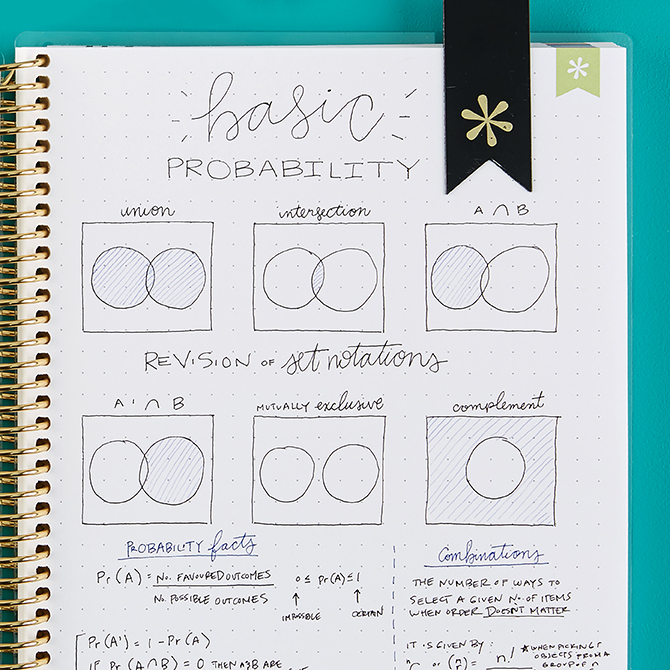 basic
PROBABILITY
union
intersection
A ∩ B
REVISION OF set notations
A' ∩ B
MUTUALLY exclusive
complement
PROBABILITY facts
Combinations
Pr(A) = NO. FAVOURED OUTCOMES
NO. POSSIBLE OUTCOMES
0 ≤ Pr(A) ≤ 1
IMPOSSIBLE
CERTAIN
THE NUMBER OF WAYS TO
SELECT A GIVEN NO. OF ITEMS
WHEN ORDER DOESN'T MATTER
Pr(A') = 1 - Pr(A)
IF Pr(A ∩ B) = 0 THEN A&B ARE
IT IS GIVEN BY:
n!
*WHEN PICKING r
OBJECTS FROM A
GROUP OF n